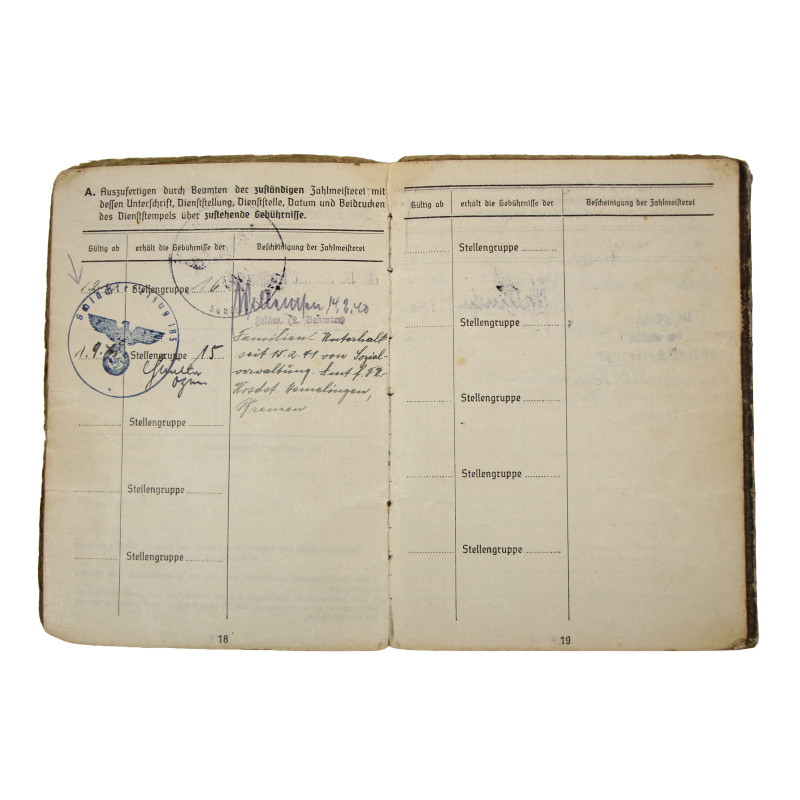 A. Auszufertigen durch Beamten der zuständigen Zahlmeisterei mit
dessen Unterschrift, Dienststellung, Dienststelle, Datum und Beidrucken
des Dienststempels über zustehende Gebührnisse.
Gültig ab erhält die Gebührnisse der Bescheinigung der Zahlmeisterei
Stellengruppe 16
14.2.40
Feldw.
1.9. Stellengruppe 15
Familien-Unterhalt
seit 15.2.41 von Sozial-
verwaltung. Amt f. FU.
Hemelingen,
Bremen
Stellengruppe
Stellengruppe
Stellengruppe
18
Gültig ab erhält die Gebührnisse der Bescheinigung der Zahlmeisterei
Stellengruppe
Stellengruppe
Stellengruppe
Stellengruppe
Stellengruppe
19